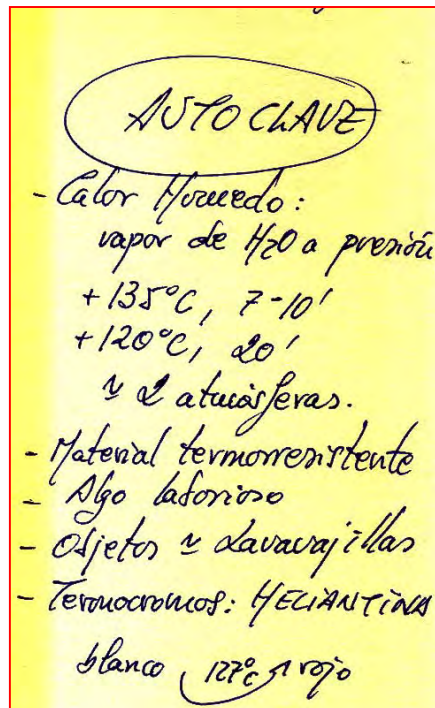 AUTOCLAVE
- Calor Húmedo:
vapor de H2O a presión
+135°C, 7-10'
+120°C, 20'
≃ 2 atmósferas.
- Material termorresistente
- Algo laborioso
- Objetos ≃ Lavavajillas
- Termocromos: HELIANTINA
blanco 127°C rojo